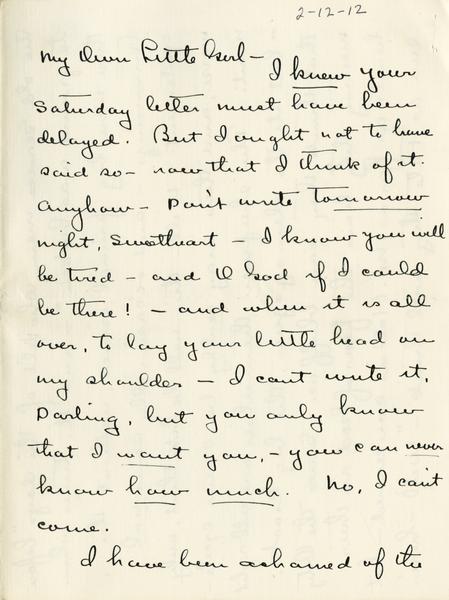 2-12-12
My Own Little Girl -
I knew your
Saturday letter must have been
delayed. But I ought not to have
said so - now that I think of it.
Anyhow - Don't write tomorrow
night, Sweetheart - I know you will
be tired - and O God if I could
be there! - and when it is all
over, to lay your little head on
my shoulder - I can't write it,
Darling, but you only know
that I want you, - you can never
know how much. No, I can't
come.
I have been ashamed of the